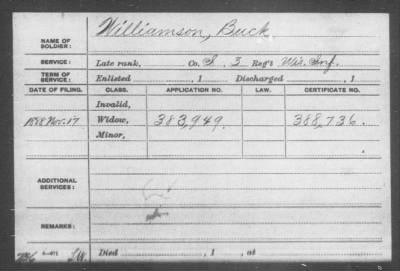 NAME OF SOLDIER: Williamson, Buck
SERVICE: Late rank, Co. I, 3 Reg't Wis. Inf.
TERM OF SERVICE: Enlisted , 1 Discharged , 1
DATE OF FILING. CLASS. APPLICATION NO. LAW. CERTIFICATE NO.
Invalid,
1888 Nov. 17 Widow, 383,949. 388,736.
Minor,
ADDITIONAL SERVICES:
REMARKS:
Died , 1 , at